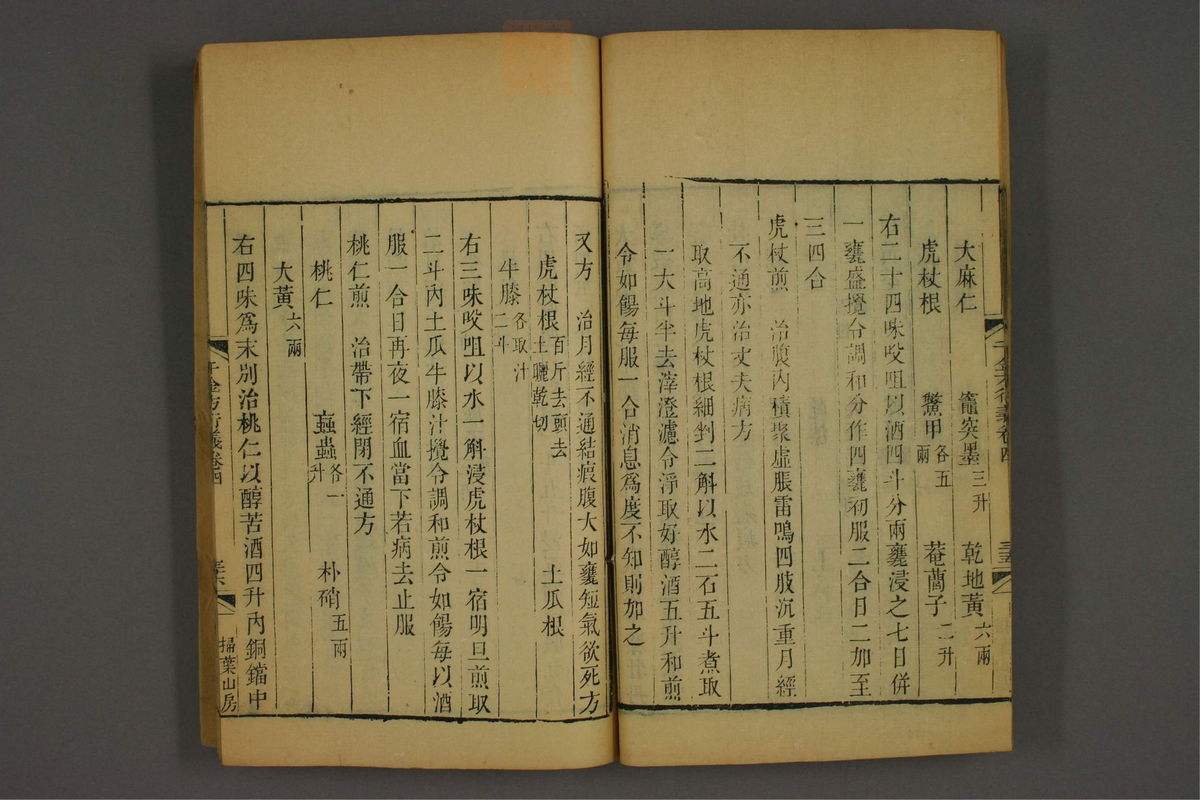 大麻仁 竈突墨三升 乾地黃六兩
虎杖根 鱉甲各五兩 菴䕡子二升
右二十四味㕮咀以酒四斗分兩甕浸之七日併
一甕盛攪合調和分作四甕初服二合日二加至
三四合
虎杖煎 治腹內積聚虛脹雷鳴四肢沉重月經
不通亦治丈夫病方
取高地虎杖根細剉二斛以水二石五斗煮取
一大斗半去滓澄濾令淨取好醇酒五升和煎
令如餳每服一合消息爲度不知則加之
又方 治月經不通結瘕腹大如甕短氣欲死方
虎杖根百斤去頭去土曬乾切 土瓜根
牛膝各取汁二斗
右三味㕮咀以水一斛浸虎杖根一宿明旦煎取
二斗內土瓜牛膝汁攪令調和煎令如餳每以酒
服一合日再夜一宿血當下若病去止服
桃仁煎 治帶下經閉不通方
桃仁 䗪蟲各一升 朴硝五兩
大黃六兩
右四味爲末別治桃仁以醇苦酒四升內銅鐺中
千金方衍義卷四
掃葉山房